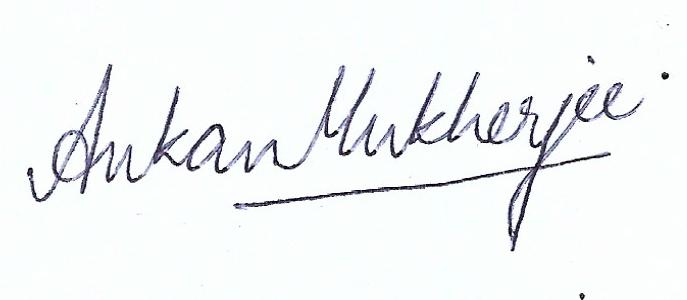 Ankan Mukherjee